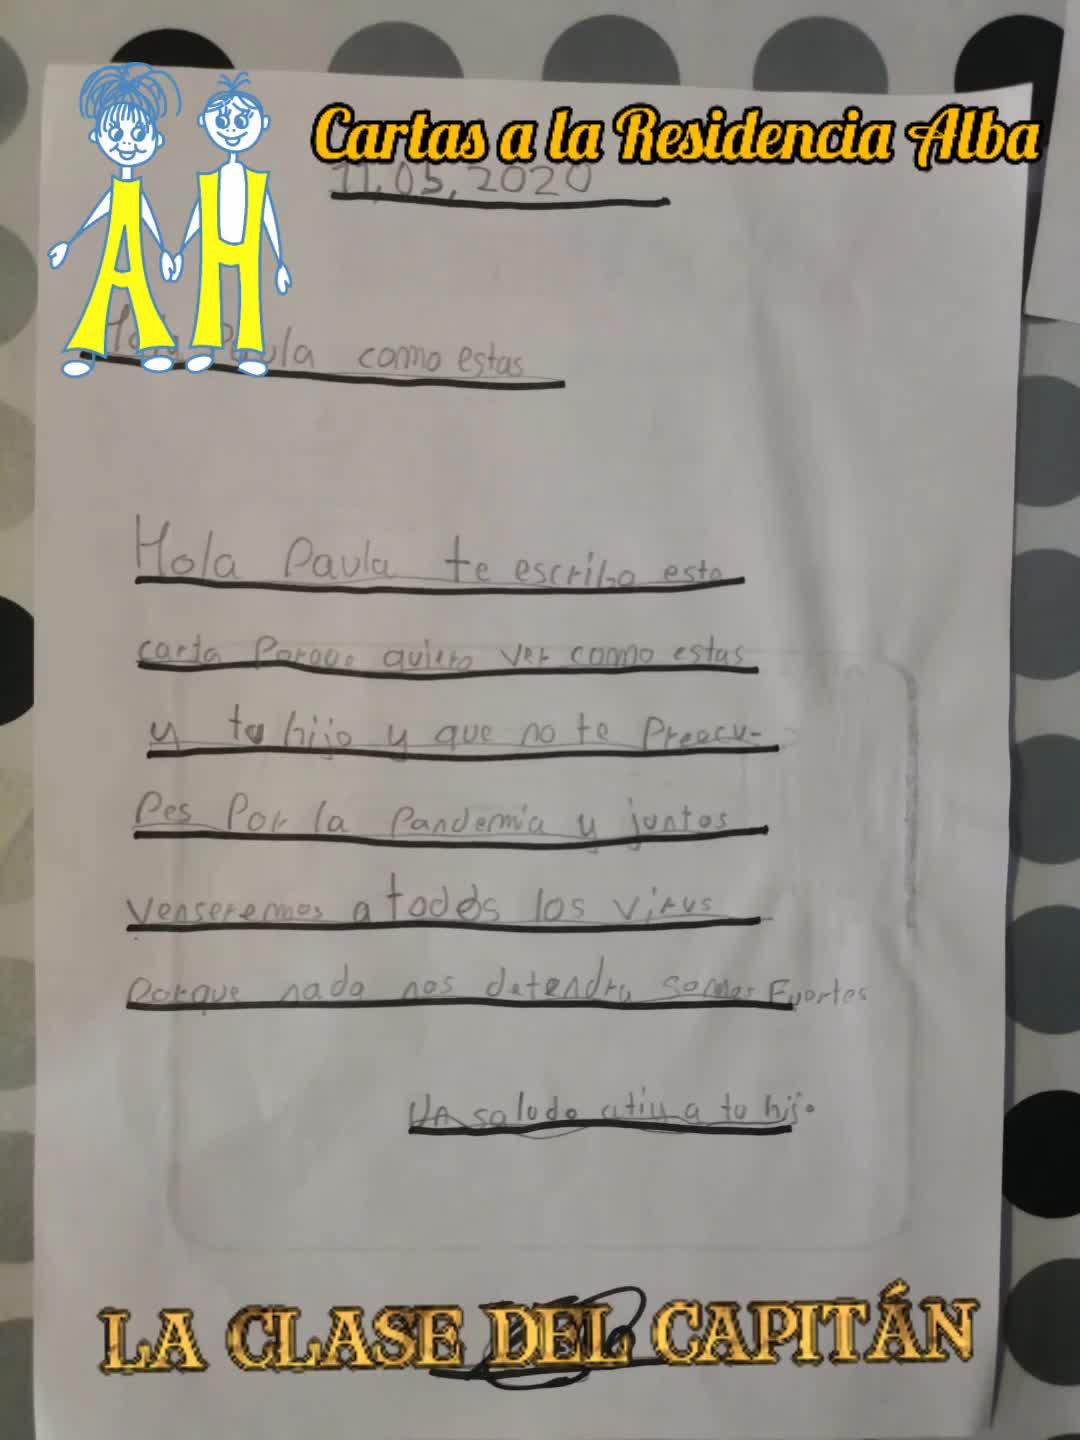 Cartas a la Residencia Alba
11,05,2020
AH
Hola Paula como estas
Hola Paula te escribo esta
carta Porque quiero ver como estas
y tu hijo y que no te Preocu-
Pes Por la Pandemia y juntos
venseremos a todos los virus
porque nada nos detendra somos Fuertes
Un saludo atiy a tu hijo
LA CLASE DEL CAPITÁN